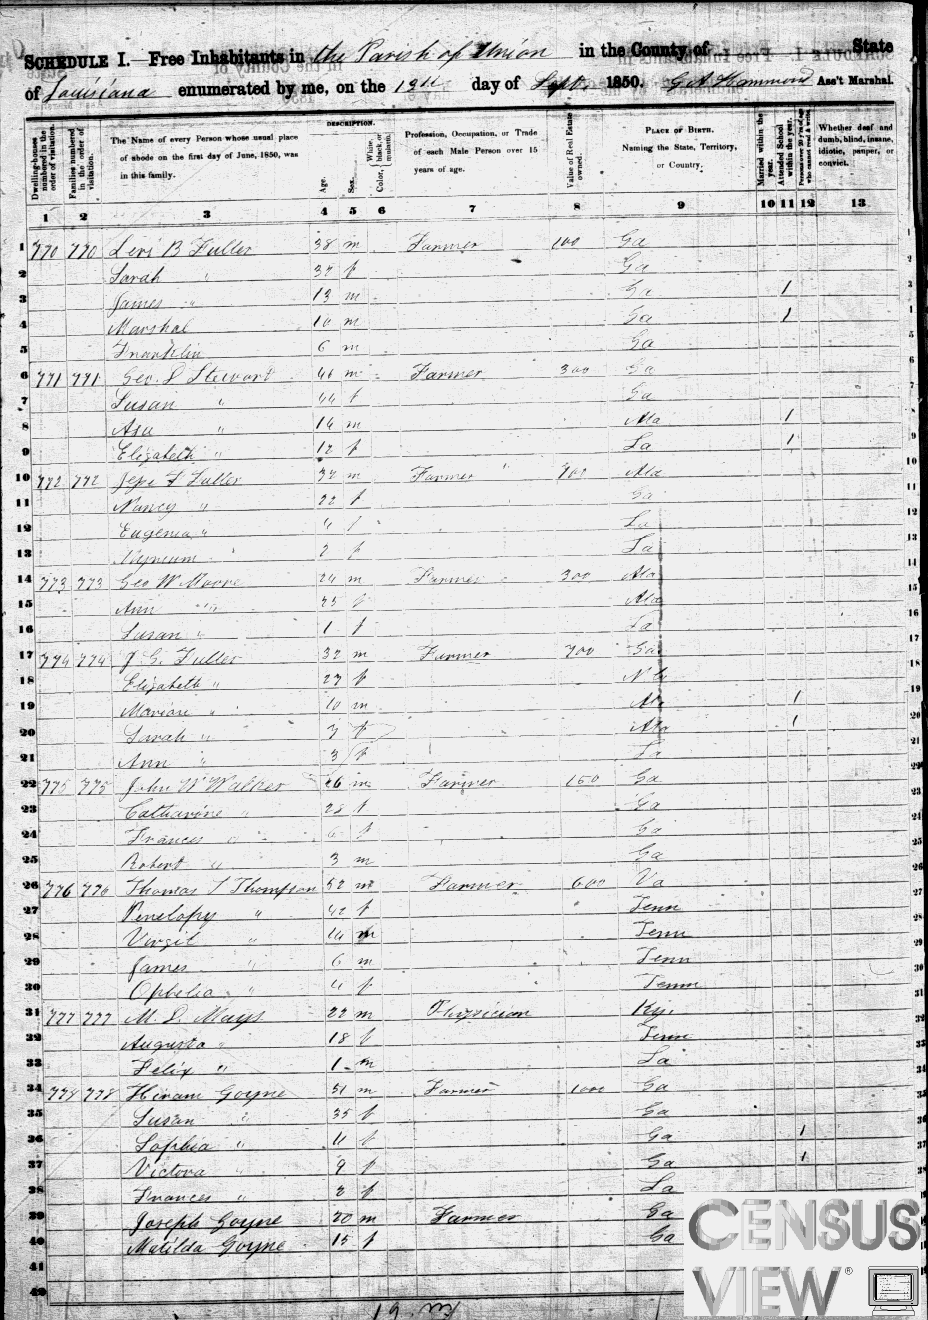 SCHEDULE I.—Free Inhabitants in the Parish of Union in the County of State
of Louisiana enumerated by me, on the 13th day of Sept. 1850. Hammond Ass't Marshal.
Dwelling-houses numbered in the order of visitation.
Families numbered in the order of visitation.
The Name of every Person whose usual place of abode on the first day of June, 1850, was in this family.
DESCRIPTION.
Age.
Sex.
Color, White, black, or mulatto.
Profession, Occupation, or Trade of each Male Person over 15 years of age.
Value of Real Estate owned.
PLACE OF BIRTH. Naming the State, Territory, or Country.
Married within the year.
Attended School within the year.
Persons over 20 y'rs of age who cannot read & write.
Whether deaf and dumb, blind, insane, idiotic, pauper, or convict.
1 2 3 4 5 6 7 8 9 10 11 12 13
1 770 770 Levi B Fuller 38 m Farmer 100 Ga
2 Sarah " f Ga
3 James " 13 m Ga 1
4 Marshal 10 m Ga 1
5 Franklin 6 m Ga
6 771 771 Geo. S Stewart 46 m Farmer 300 Ga
7 Susan " 44 f Ga
8 Asa " 14 m Ala 1
9 Elizabeth " 12 f La 1
10 772 772 Fuller m Farmer Ala
11 Nancy " 22 f Ga
12 Eugenia " 4 f La
13 2 f La
14 773 773 Geo W Moore 24 m Farmer 300 Ala
15 Ann " 25 f Ala
16 Susan " 1 f La
17 774 774 J G Fuller 32 m Farmer 700 Ga
18 Elizabeth " 27 f
19 Marion " 10 m Ala 1
20 Sarah " 7 f Ala 1
21 Ann " 3 f La
22 775 775 John W Walker 26 m Farmer 150 Ga
23 Catharine " f Ga
24 Frances " 6 f Ga
25 Robert " 3 m Ga
26 776 776 Thomas T Thompson 52 m Farmer 600 Va
27 Penelopy " 42 f Tenn
28 Virgil " 14 m Tenn
29 James " 6 m Tenn
30 Ophelia " 4 f Tenn
31 777 777 M. S. Mays 22 m Physician Ky.
32 Augusta " 18 f Tenn
33 Felix " 1 m La
34 778 778 Hiram Goyne 51 m Farmer 1000 Ga
35 Susan " 35 f Ga
36 Sophia " 11 f Ga 1
37 Victora " 9 f Ga 1
38 Frances " 2 f La
39 Joseph Goyne 20 m Farmer Ga
40 Matilda Goyne 15 f Ga
41
CENSUS
VIEW®